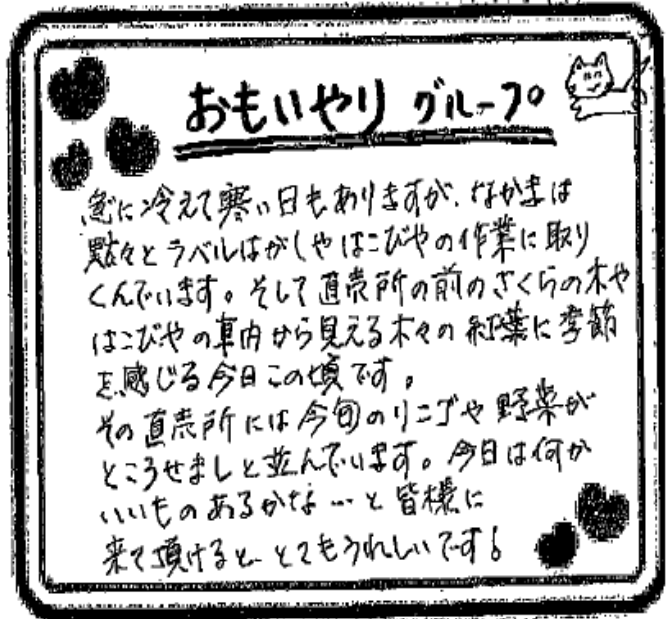 おもいやり グループ
急に冷えて寒い日もありますが、なかまは
黙々とラベルはがしやはこびやの作業に取り
くんでいます。そして直売所の前のさくらの木や
はこびやの車内から見える木々の紅葉に季節
を感じる今日この頃です。
その直売所には今旬のリンゴや野菜が
ところせましと並んでいます。今日は何か
いいものあるかな…と皆様に
来て頂けると、とてもうれしいです!